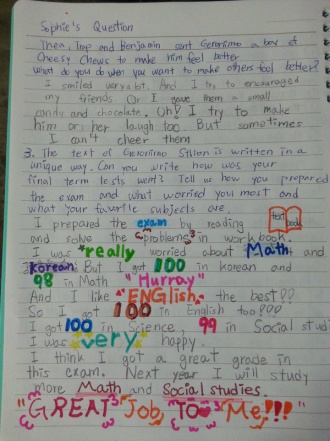 Sophie's Question
Thea, Trap and Benjamin sent Geronimo a box of
Cheesy Chews to make him feel better
what do you do when you want to make others feel better?
I smiled very a bit. And I try to encouraged
my friends. Or I gave them a small
candy and chocolate. Oh! I try to make
him or her laugh too. But sometimes
I can't cheer them
3. The text of Geronimo Stilton is written in a
unique way. Can you write how was your
final term tests went? Tell us how you prepared
the exam and what worried you most and
what your favorite subjects are.
I prepared the exam by reading text book
and solve the problems in work book.
I was really worried about Math and
Korean. But I got 100 in korean and
98 in Math "Hurray"
And I like "ENGlish" the best??
So I got 100 in English too???
I got 100 in Science, 99 in Social stud
I was very happy.
I think I got a great grade in
this exam. Next year I will study
more Math and Social studies.
"GREAT Job TO Me!!!"